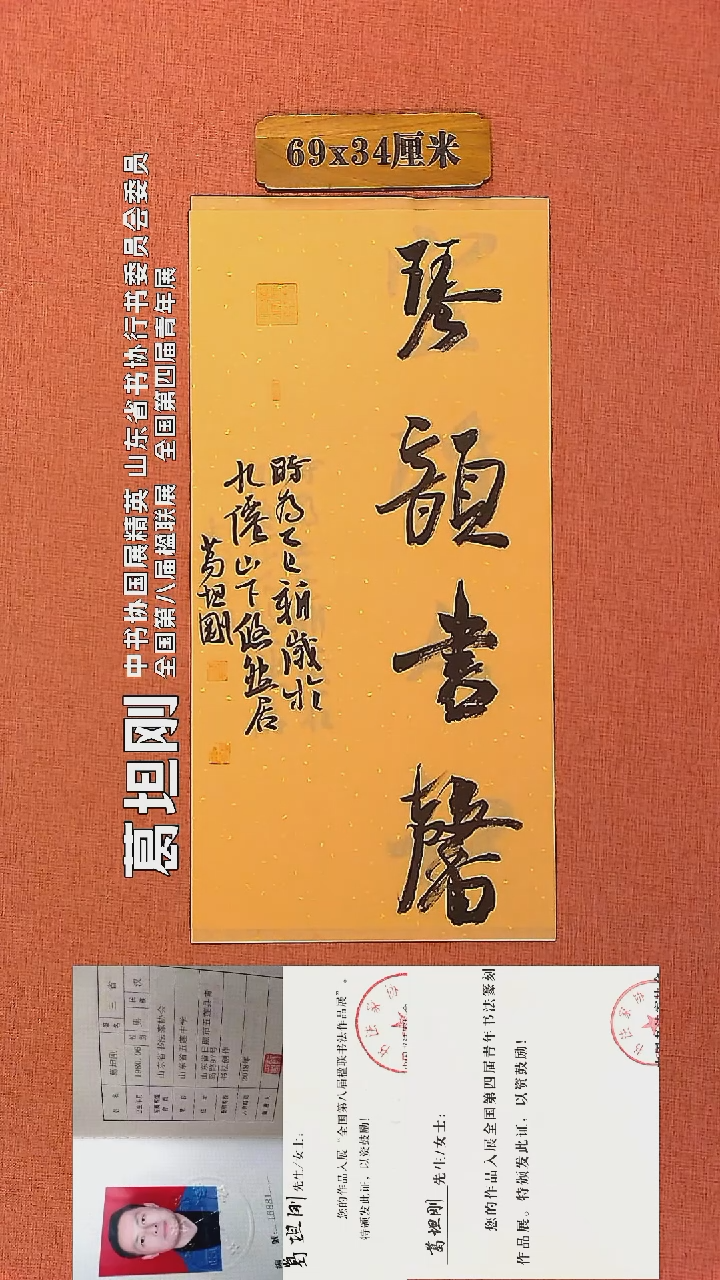 69x34厘米
琴
韻
書
馨
時為乙巳新歲於
九僊山下悠然居
葛坦刚
葛坦刚
中书协国展精英 山东省书协行书委员会委员
全国第八届楹联展 全国第四届青年展
山东省书法家协会
山东省五莲中学
书法创作
葛坦刚 先生/女士:
您的作品入展“全国第八届楹联书法作品展”。
特颁发此证，以资鼓励!
葛坦刚 先生/女士:
您的作品入展全国第四届青年书法篆刻
作品展。特颁发此证，以资鼓励!